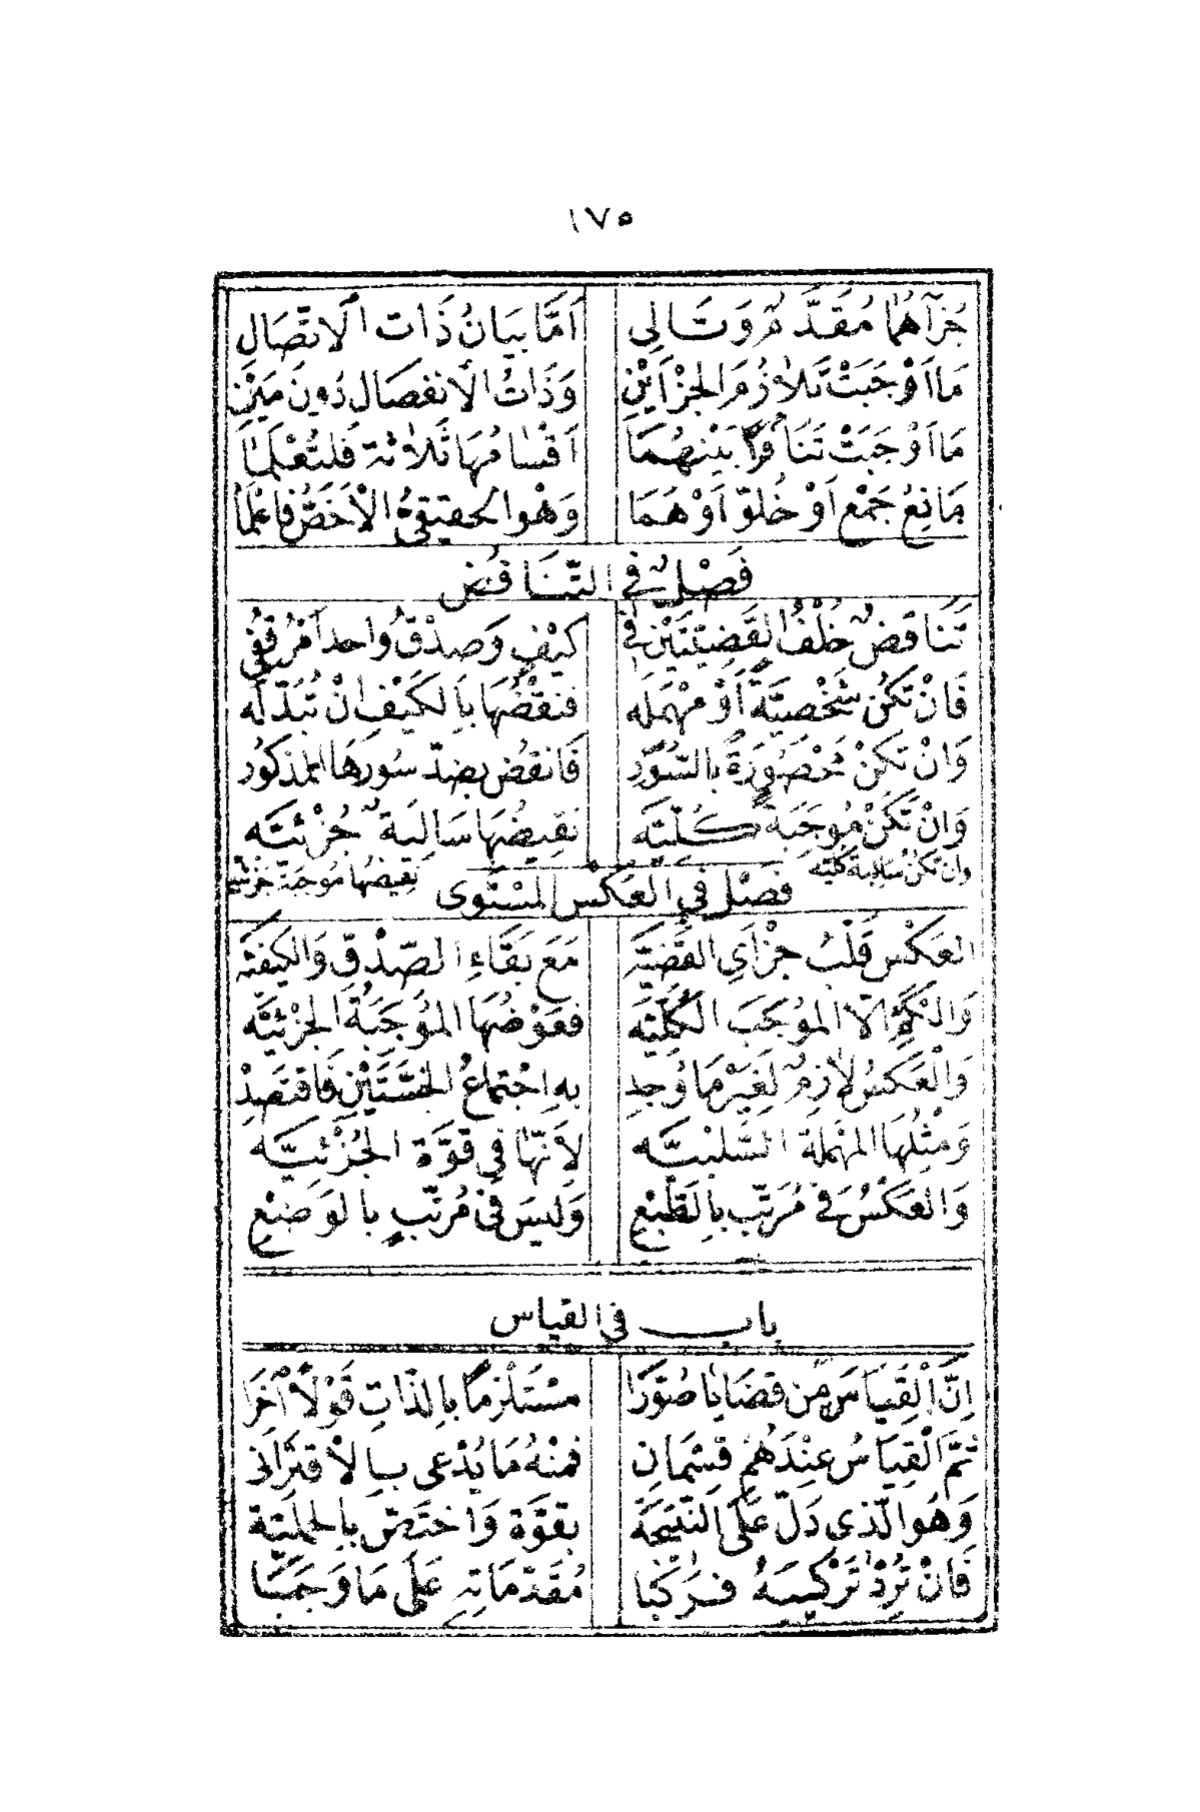 ١٧٥
جُزْآهُمَا مُقَدَّمٌ وَتَالِى أَمَّا بَيَانُ ذَاتِ الْاِتِّصَالِ
مَا اَوْجَبَتْ تَلَازُمَ الْجُزْأَيْنِ وَذَاتُ الْاِنْفِصَالِ دُونَ مَيْنِ
مَا اَوْجَبَتْ تَنَافُرًا بَيْنَهُمَا اَقْسَامُهَا ثَلَاثَةٌ فَلْتُعْلَمَا
مَانِعُ جَمْعٍ اَوْ خُلُوٍّ اَوْ هُمَا وَهْوَ الْحَقِيقِىُّ الْاَخَصُّ فَاعْلَمَا
فَصْلٌ فِي التَّنَاقُضِ
تَنَاقُضٌ خُلْفُ الْقَضِيَّتَيْنِ فِى كَيْفٍ وَصِدْقُ وَاحِدٍ اَمْرٌ قُفِى
فَاِنْ تَكُنْ شَخْصِيَّةً اَوْ مُهْمَلَه فَنَقْضُهَا بِالْكَيْفِ اَنْ تُبَدِّلَه
وَاِنْ تَكُنْ مَحْصُورَةً بِالسُّورِ فَانْقُضْ بِضِدِّ سُورِهَا الْمَذْكُورِ
وَاِنْ تَكُنْ مُوجَبَةً كُلِّيَّه نَقِيضُهَا سَالِبَةٌ جُزْئِيَّه
وان تكن سَالِبَة كُلِّيَّه نَقِيضُهَا مُوجَبَةٌ جُزْئِيَّه
فَصْلٌ فِي الْعَكْسِ الْمُسْتَوِى
الْعَكْسُ قَلْبُ جُزْأَىِ الْقَضِيَّه مَعَ بَقَاءِ الصِّدْقِ وَالْكَيْفِيَّه
وَالْكَمِّ اِلَّا الْمُوجَبَ الْكُلِّيَّه فَعَوِّضُهَا الْمُوجَبَةُ الْجُزْئِيَّه
وَالْعَكْسُ لَازِمٌ لِغَيْرِ مَا وُجِدِ بِهِ اجْتِمَاعُ الْخِسَّتَيْنِ فَاقْتَصِدْ
وَمِثْلُهَا الْمُهْمَلَةُ السَّلْبِيَّه لِاَنَّهَا فِي قُوَّةِ الْجُزْئِيَّه
وَالْعَكْسُ فِى مُرَتَّبٍ بِالطَّبْعِ وَلَيْسَ فِى مُرَتَّبٍ بِالْوَضْعِ
باب في القياس
اِنَّ الْقِيَاسَ مِنْ قَضَايَا صُوِّرَا مُسْتَلْزِمًا بِالذَّاتِ قَوْلًا آخَرَا
ثُمَّ الْقِيَاسُ عِنْدَهُمْ قِسْمَانِ فَمِنْهُ مَا يُدْعَى بِالْاِقْتِرَانِى
وَهُوَ الَّذِى دَلَّ عَلَى النَّتِيجَةِ بِقُوَّةٍ وَاخْتَصَّ بِالْحَمْلِيَّةِ
فَاِنْ تُرِدْ تَرْكِيبَهُ فَرَكِّبَا مُقَدِّمَاتِهِ عَلَى مَا وَجَبَا